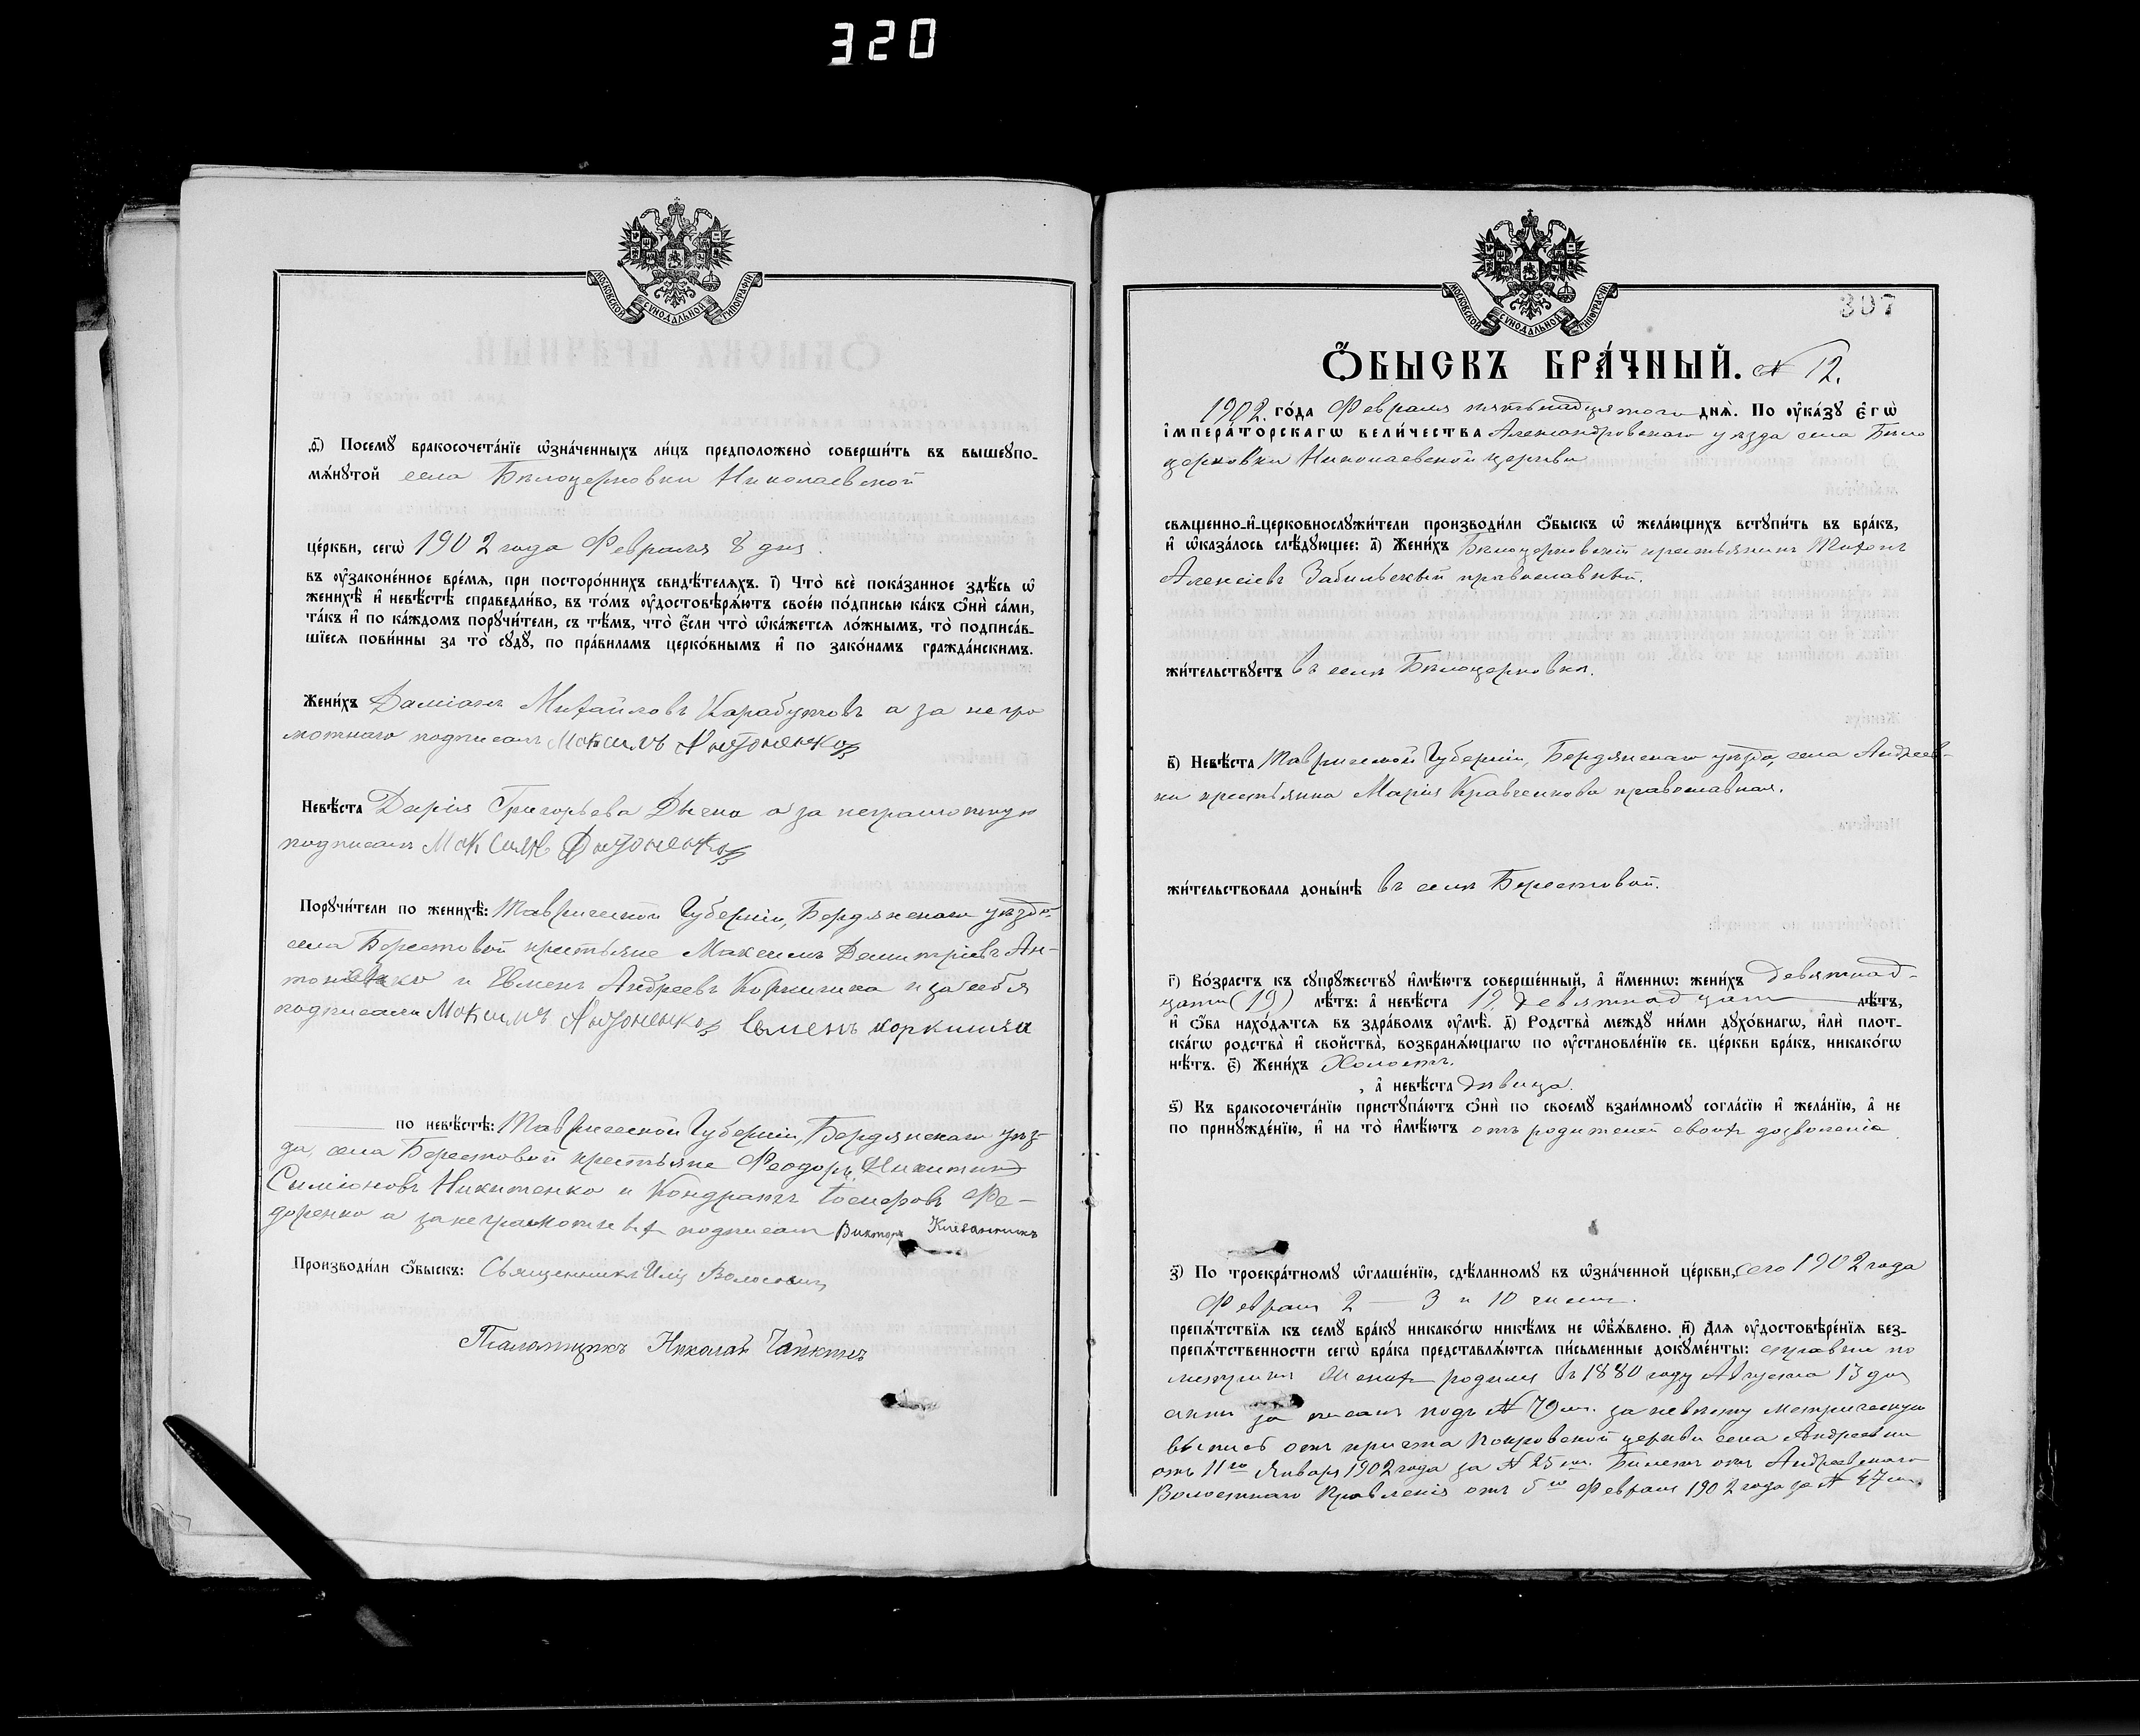 320
МОСКОВСКОЙ СѴНОДАЛЬНОЙ ТИПОГРАФІИ
ѳ҃) Посемꙋ̀ бракосочета́нїе ѡ҆зна́ченныхъ ли́цъ предположено̀ соверши́ть въ вышеꙋпо-
мѧ́нꙋтой села Бѣлоцерковки Николаевской
це́ркви, сегѡ̀ 1902 года Февраля 8 дня.
въ ѹ҆зако́ненное вре́мѧ, при посторо́ннихъ свидѣ́телѧхъ. і҃) Что̀ всѐ пока́занное здѣ́сь ѡ҆
женихѣ̀ и҆ невѣ́стѣ справедли́во, въ то́мъ ѹ҆достовѣрѧ́ютъ свое́ю по́дписью ка́къ ѻ҆нѝ са́ми,
та́къ и҆ по ка́ждомъ порꙋчи́тели, съ тѣ́мъ, что̀ є҆́сли что̀ ѡ҆ка́жетсѧ ло́жнымъ, то̀ подписа́в-
шїесѧ пови́нны за то̀ сꙋдꙋ̀, по пра́виламъ церко́внымъ и҆ по зако́намъ гражда́нскимъ.
Жени́хъ Даміанъ Михайловъ Карабутовъ а за негра
мотнаго подписалъ Максимъ Антоненко
Невѣ́ста Дарія Григорьева Дычко а за неграмотную
подписалъ Максимъ Антоненко
Порꙋчи́тели по женихѣ̀: Таврической Губерніи, Бердянскаго уѣзда
села Берестовой крестьяне Максимъ Димитріевъ Ан-
тоненко и Евменъ Андреевъ Коркишка и за себя
подписали Максимъ Антоненко Евменъ коркишка
по невѣ́стѣ: Таврической Губерніи, Бердянскаго уѣз-
да, села Берестовой крестьяне Феодоръ Никитинъ
Симіоновъ Никитенко и Кондратъ Іосифовъ Фе-
доренко а за неграмотныхъ подписалъ Викторъ
Производи́ли ѻ҆́быскъ: Священникъ Илія Волосевичъ
Псаломщикъ Николай Чайкинъ
МОСКОВСКОЙ СѴНОДАЛЬНОЙ ТИПОГРАФІИ
307
Ѻ҆́БЫСКЪ БРА́ЧНЫЙ. № 12.
1902. го́да Февраля пятьнадцятаго днѧ̀. По ѹ҆ка́зꙋ є҆гѡ̀
і҆мпера́торскагѡ вели́чества Александровскаго уѣзда села Бѣло
церковки Николаевской церкви
свѧщенно-и҆-церковнослꙋжи́тели производи́ли ѻ҆́быскъ ѡ҆ жела́ющихъ встꙋпи́ть въ бра́къ,
и҆ ѡ҆каза́лось слѣ́дꙋющее: а҃) Жени́хъ Бѣлоцерковскій крестьянинъ Тихонъ
Алексіевъ Забильскій православный.
жи́тельствꙋетъ въ селѣ Бѣлоцерковкѣ.
в҃) Невѣ́ста Таврической Губерніи, Бердянскаго уѣзда, села Андреев-
ки крестьянка Марія Кравченкова православная.
жи́тельствовала доны́нѣ въ селѣ Берестовой.
г҃) Во́зрастъ къ сꙋпрꙋ́жествꙋ и҆мѣ́ютъ соверше́нный, а҆ и҆́менно: жени́хъ девятнад-
цати (19) лѣ́тъ: а҆ невѣ́ста 19 девятнадцати лѣ́тъ,
и҆ ѻ҆́ба нахо́дѧтсѧ въ здра́вомъ ѹ҆мѣ̀. д҃) Родства̀ междꙋ̀ ни́ми дꙋхо́внагѡ, и҆лѝ плот-
ска́гѡ родства̀ и҆ сво́йства, возбранѧ́ющагѡ по ѹ҆становле́нїю св. це́ркви бра́къ, никако́гѡ
нѣ́тъ. є҃) Жени́хъ Холостъ.
, а҆ невѣ́ста дѣвица.
ѕ҃) Къ бракосочета́нїю пристꙋпа́ютъ ѻ҆нѝ по своемꙋ̀ взаи́мномꙋ согла́сїю и҆ жела́нїю, а҆ не
по принꙋжде́нїю, и҆ на то̀ и҆мѣ́ютъ отъ родителей своихъ дозволеніе
з҃) По троекра́тномꙋ ѡ҆глаше́нїю, сдѣ́ланномꙋ въ ѡ҆зна́ченной це́ркви, сего 1902 года
Февраля 2 — 3 и 10 чиселъ.
препѧ́тствїѧ къ семꙋ̀ бра́кꙋ никако́гѡ никѣ́мъ не ѡ҆б̾ѧ́влено. и҃) Длѧ ѹ҆достовѣре́нїѧ без-
препѧ́тственности сегѡ̀ бра́ка представлѧ́ютсѧ пи́сьменные докꙋме́нты: справки по
метрикѣ Женихъ родился въ 1880 году Августа 13 дня
актъ записанъ подъ № 79 м. за невѣсту метрическую
выпись отъ причта Покровской церкви села Андреевки
отъ 11го Января 1902 года за № 25 м. Билетъ отъ Андреевскаго
Волостнаго Правленія отъ 5го Февраля 1902 года за № 47 м.